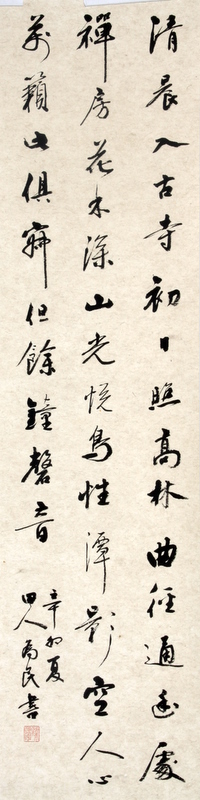 清晨入古寺初日照高林曲徑通幽處
禪房花木深山光悦鳥性潭影空人心
萬籟此俱寂但餘鐘磬音
辛卯夏
田人為民書